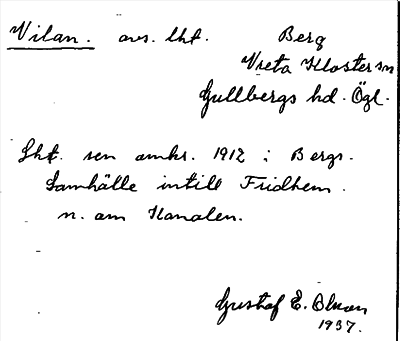 Vilan. avs. lht. Berg
Vreta Kloster sn
Gullbergs hd. Ögl.
Lht. sen omkr. 1912 i Bergs.
Samhälle intill Fridhem.
n. om Kanalen.
Gustaf E. Olsson
1937.